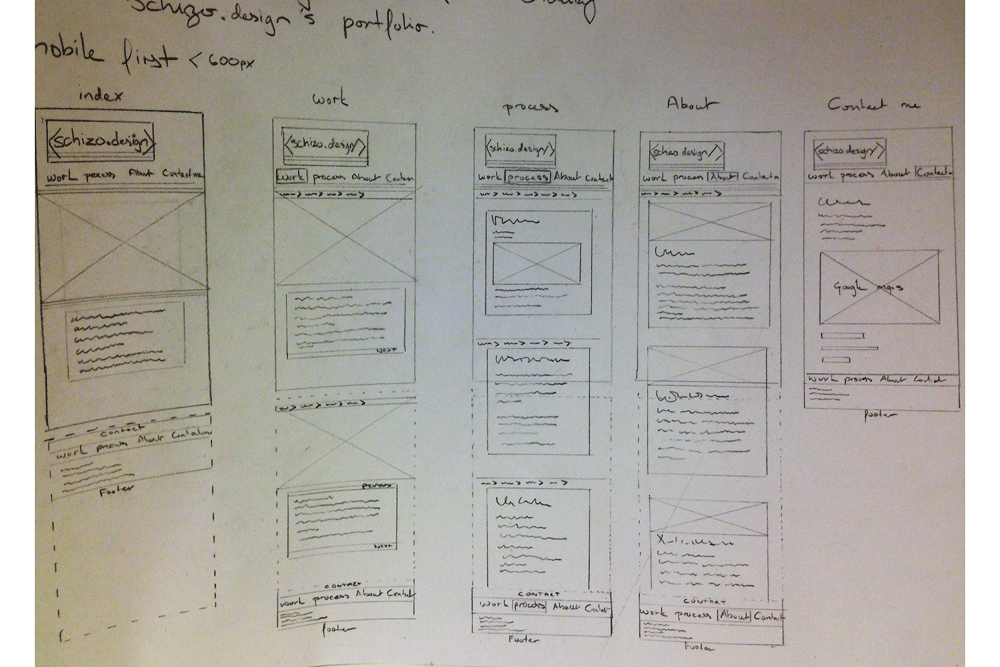 schizo.design's portfolio.
mobile first < 600px
index
<schizo.design>
work process About Contact me
contact
work process About Contact me
Footer
work
<schizo.design/>
work process About Contact
NEXT
previous
Next
CONTACT
work process About Contact
footer
process
<schizo.design/>
work process About Contact
CONTACT
work process About Contact
Footer
About
<schizo.design/>
work process About Contact
CONTACT
work process About Contact
Footer
Contact me
<schizo.design/>
work process About Contact
Google maps
work process About Contact
footer